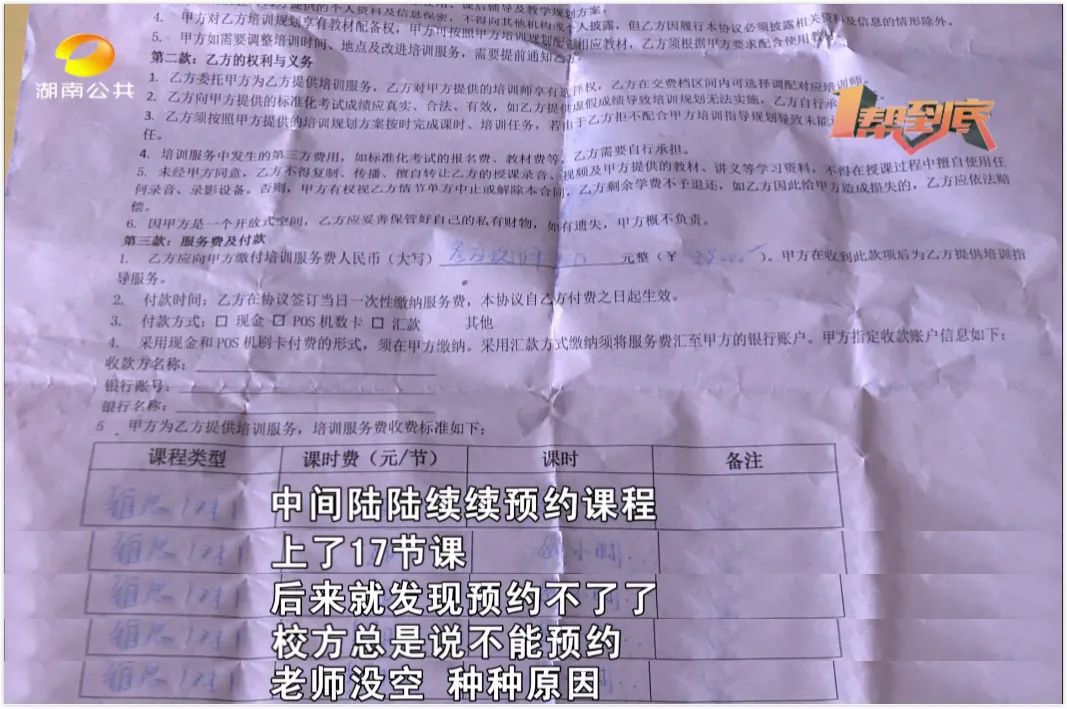 提供的个人资料及信息保密，不得向其他机构或个人披露，但乙方因履行本协议必须披露相关资料及信息的情形除外。
4. 甲方对乙方培训规划享有教材配备权，甲方可按照甲方培训规划配备相应教材，乙方须根据甲方要求配合使用教材。
5. 甲方如需要调整培训时间、地点及改进培训服务，需要提前通知乙方。
第二款：乙方的权利与义务
1. 乙方委托甲方为乙方提供培训服务，乙方对甲方提供的培训师享有选择权，乙方在交费档区间内可选择调配对应培训师。
2. 乙方向甲方提供的标准化考试成绩应真实、合法、有效，如乙方提供虚假成绩导致培训规划无法实施，乙方自行承
3. 乙方须按照甲方提供的培训规划方案按时完成课时、培训任务，若由于乙方拒不配合甲方培训指导规划导致未能
任。
4. 培训服务中发生的第三方费用，如标准化考试的报名费、教材费等，乙方需要自行承担。
5. 未经甲方同意，乙方不得复制、传播、擅自转让乙方的授课录音、视频及甲方提供的教材、讲义等学习资料，不得在授课过程中擅自使用任
何录音、录影设备。否则，甲方有权视乙方情节单方中止或解除本合同，乙方剩余学费不予退还，如乙方因此给甲方造成损失的，乙方应依法赔
偿。
6. 因甲方是一个开放式空间，乙方应妥善保管好自己的私有财物，如有遗失，甲方概不负责。
第三款：服务费及付款
1. 乙方应向甲方缴付培训服务费人民币（大写） 元整（￥ ）。甲方在收到此款项后为乙方提供培训指
导服务。
2. 付款时间：乙方在协议签订当日一次性缴纳服务费，本协议自乙方付费之日起生效。
3. 付款方式：☐ 现金 ☑ POS 机数卡 ☐ 汇款 其他
4. 采用现金和POS 机刷卡付费的形式，须在甲方缴纳。采用汇款方式缴纳须将服务费汇至甲方的银行账户。甲方指定收款账户信息如下：
收款方名称：
银行账号：
银行名称：
5 . 甲方为乙方提供培训服务，培训服务费收费标准如下：
课程类型 课时费（元/节） 课时 备注
雅思1对1
中间陆陆续续预约课程
雅思1对1
上了17节课
小时
雅思1对1
后来就发现预约不了了
雅思1对1
校方总是说不能预约
雅思1对1
老师没空 种种原因
湖南公共
1帮到底